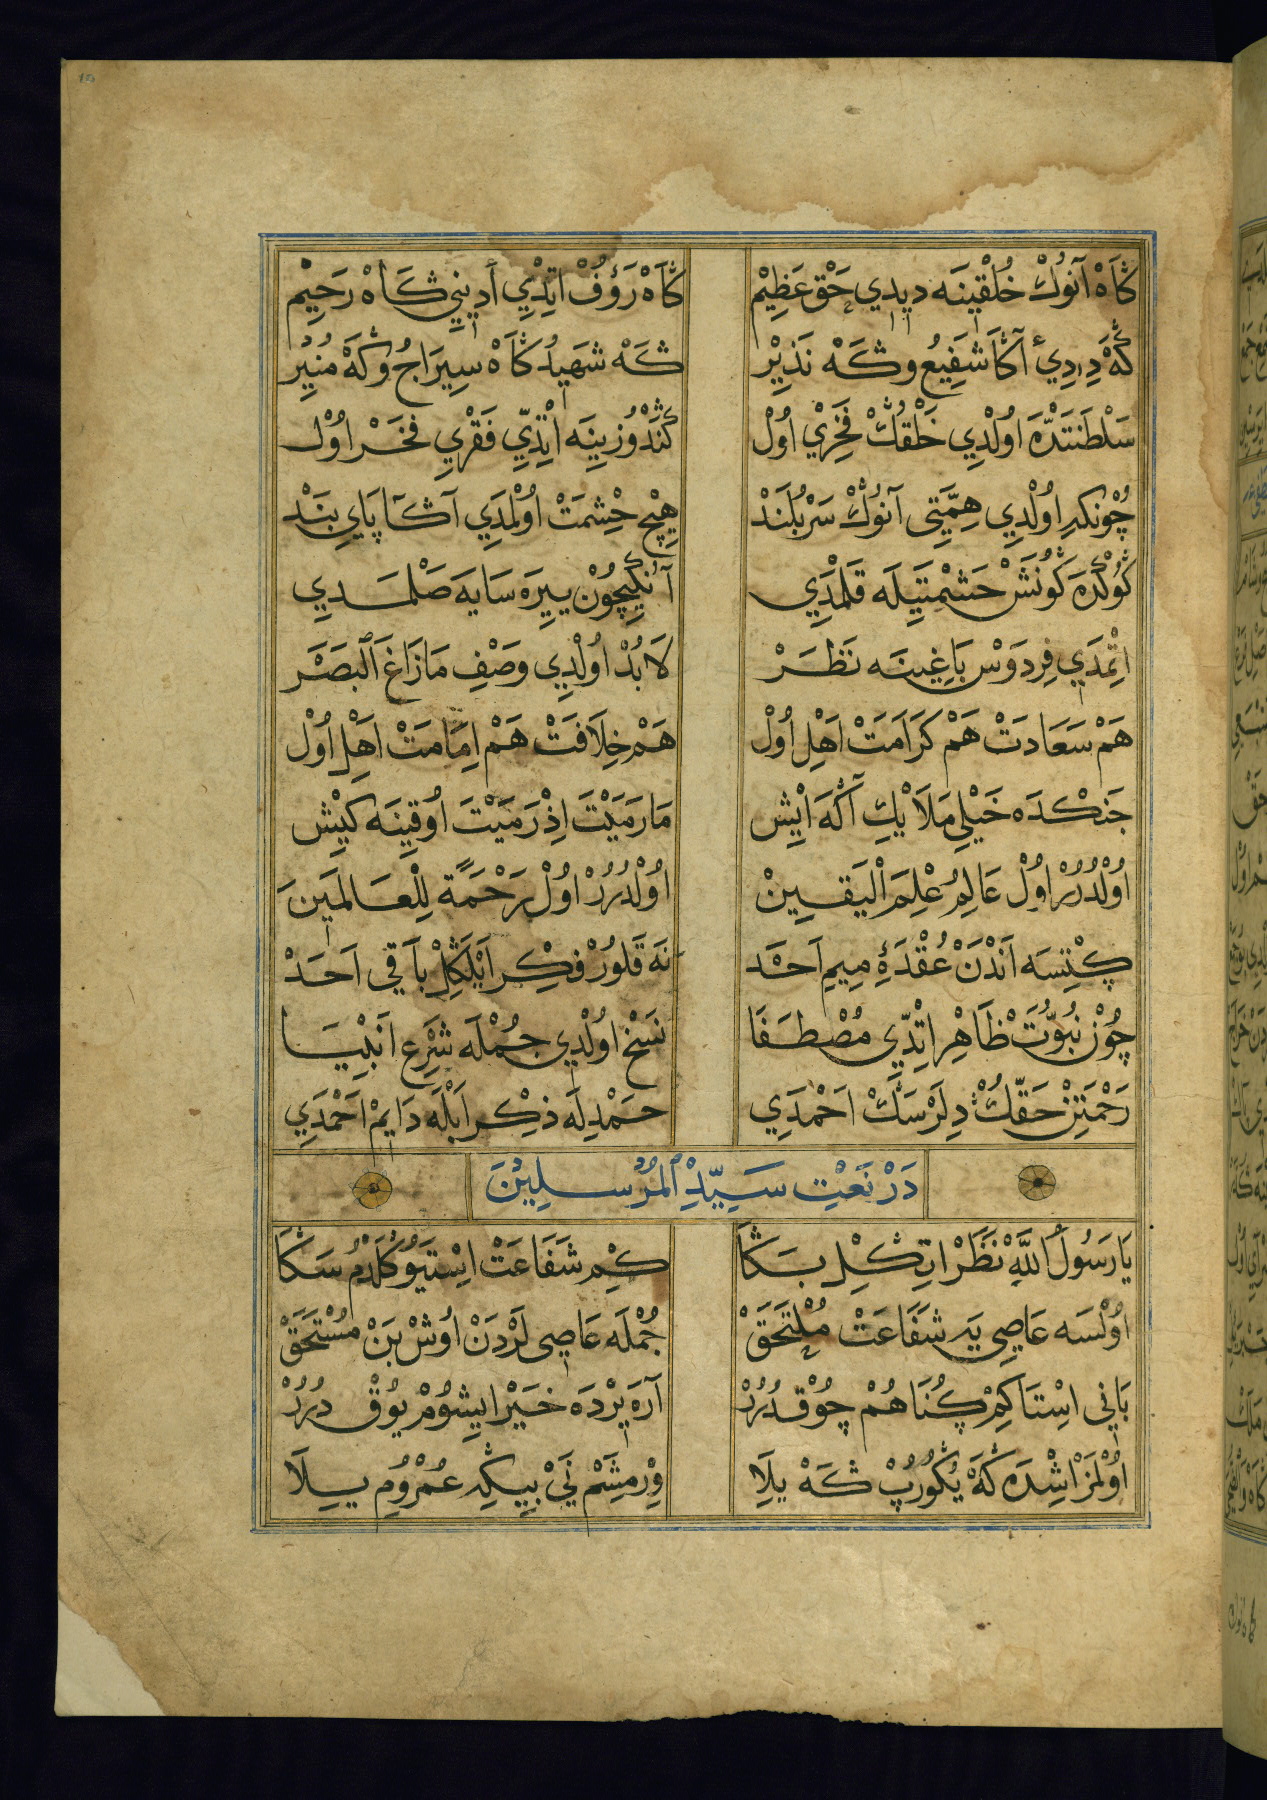 كاه آنوك خلقينه ديدي حق عظيم كاه رؤف اتدي أديني كاه رحيم
كه ددي آكا شفيع و كه نذير كه شهيد كاه سيراج و كه منير
سلطنتده اولدي خلقك فخري اول كندوزينه اتدي فقري فخر اول
چونكه اولدي همتي آنوك سربلند هيچ حشمت اولمدي آكا پاي بند
كوكده كونش حشمتيله قلمدي آنكيچون ييره سايه صلمدي
اتمدي فردوس باغينه نظر لا بد اولدي وصف ما زاغ البصر
هم سعادت هم كرامت اهل اول هم خلافت هم امامت اهل اول
جنكده خيل ملايك آكه ايش ما رميت اذ رميت اوقينه كيش
اولدرر اول عالم علم اليقين اولدرر اول رحمة للعالمين
كتسه اندن عقدۀ ميم احمد نه قلور فكر ايلكل باقي احد
چون نبوت ظاهر اتدي مصطفا نسخ اولدي جمله شرع انبيا
رحمتن حقك دلرسك احمدي حمدله ذكر ايله دايم احمدي
در نعت سيد المرسلين
يا رسول الله نظر اتكل بكا كم شفاعت استيو كلدم سكا
اولسه عاصي يه شفاعت ملتحق جمله عاصي لردن اوش بن مستحق
باني استا كم كناهم چوقدرر آره يرده خير ايشوم يوق درر
اولمز اشده كه يكورپ كه يلا ورمشم ني بيكه عمروم يلا